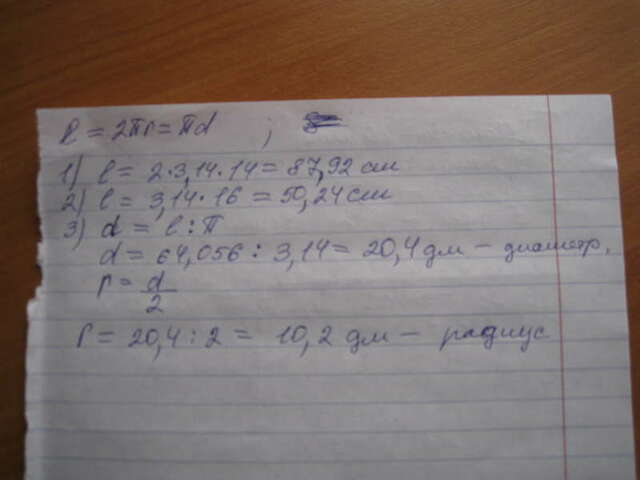 ℓ = 2πr = πd ;
1) ℓ = 2·3,14·14 = 87,92 см
2) ℓ = 3,14·16 = 50,24 см
3) d = ℓ : π
d = 64,056 : 3,14 = 20,4 дм — диаметр,
r = d/2
r = 20,4 : 2 = 10,2 дм — радиус